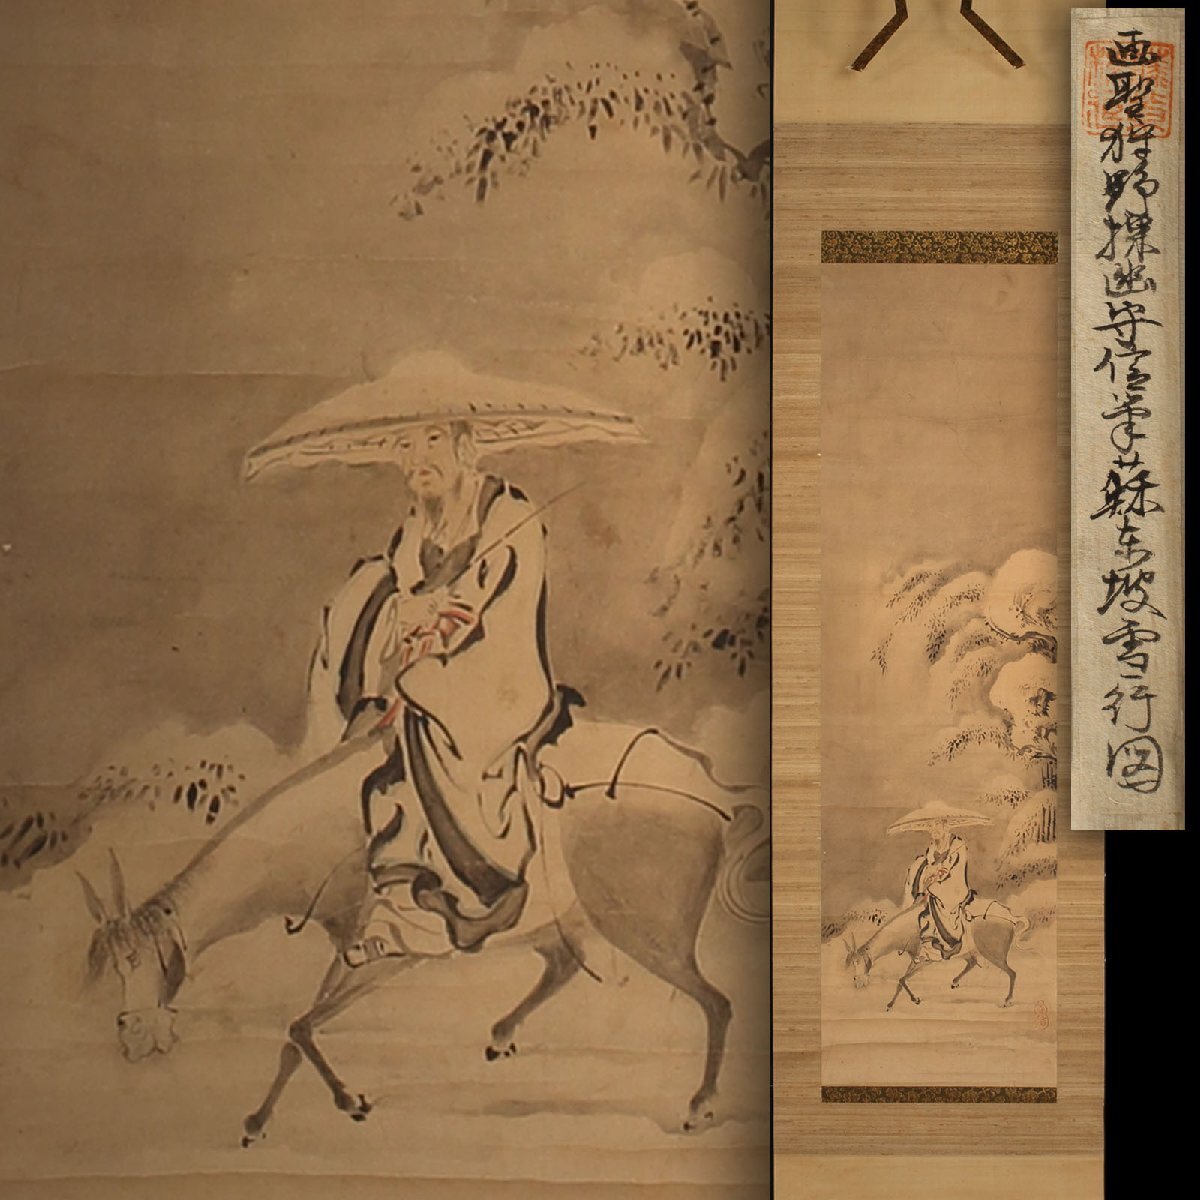 画聖狩野探幽守信筆蘇東坡雪行図